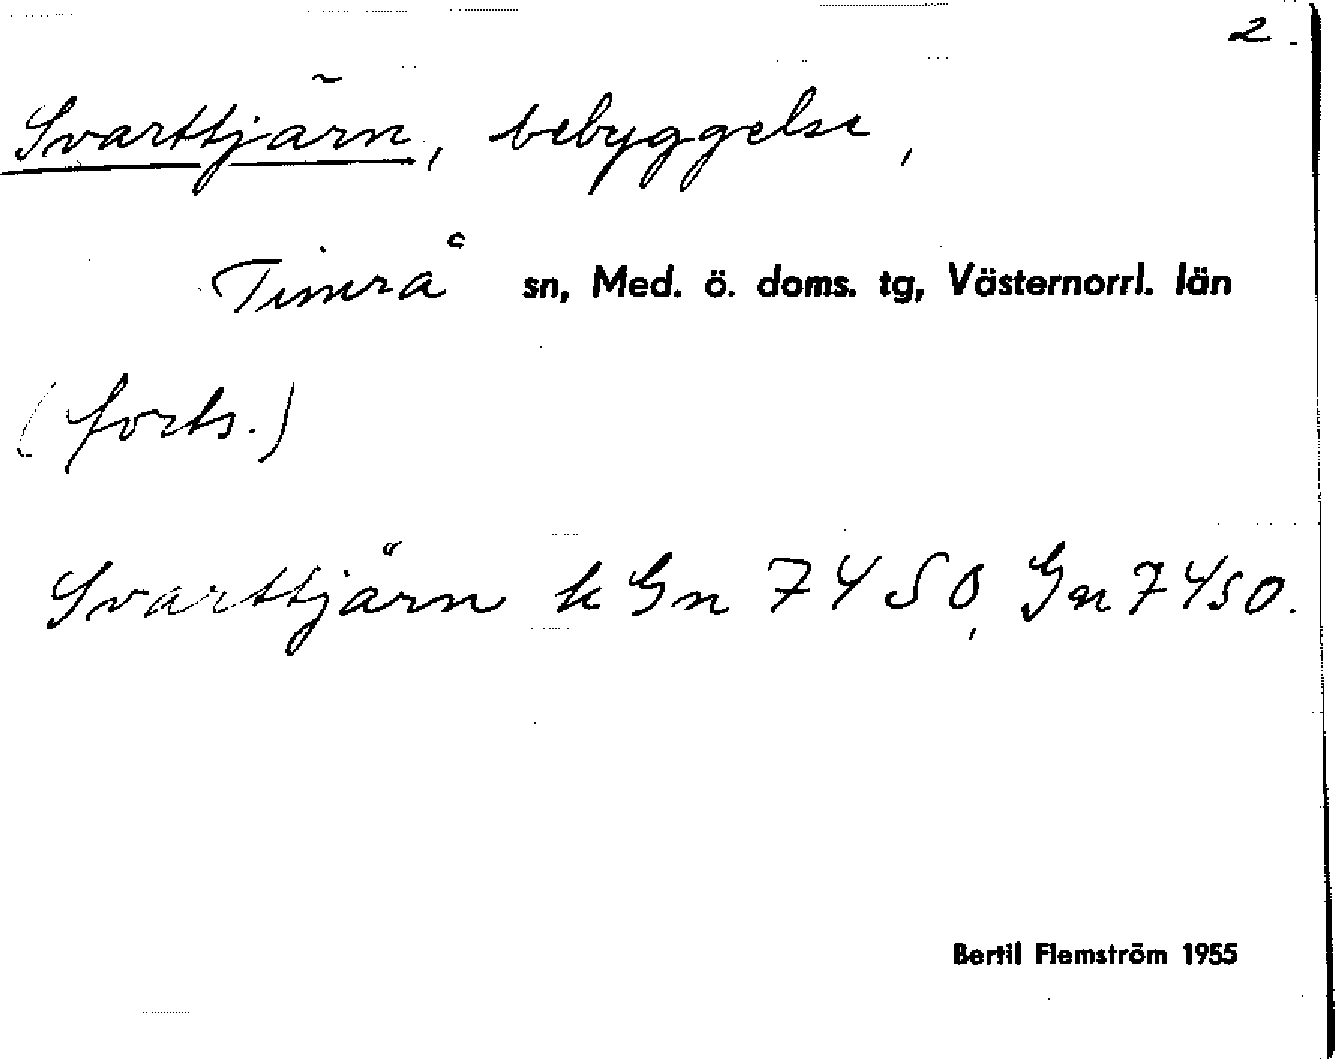 2.
Svarttjärn, bebyggelse,
Timrå sn, Med. ö. doms. tg, Västernorrl. län
(forts.)
Svarttjärn k Gn 7450, Gn 7450.
Bertil Flemström 1955